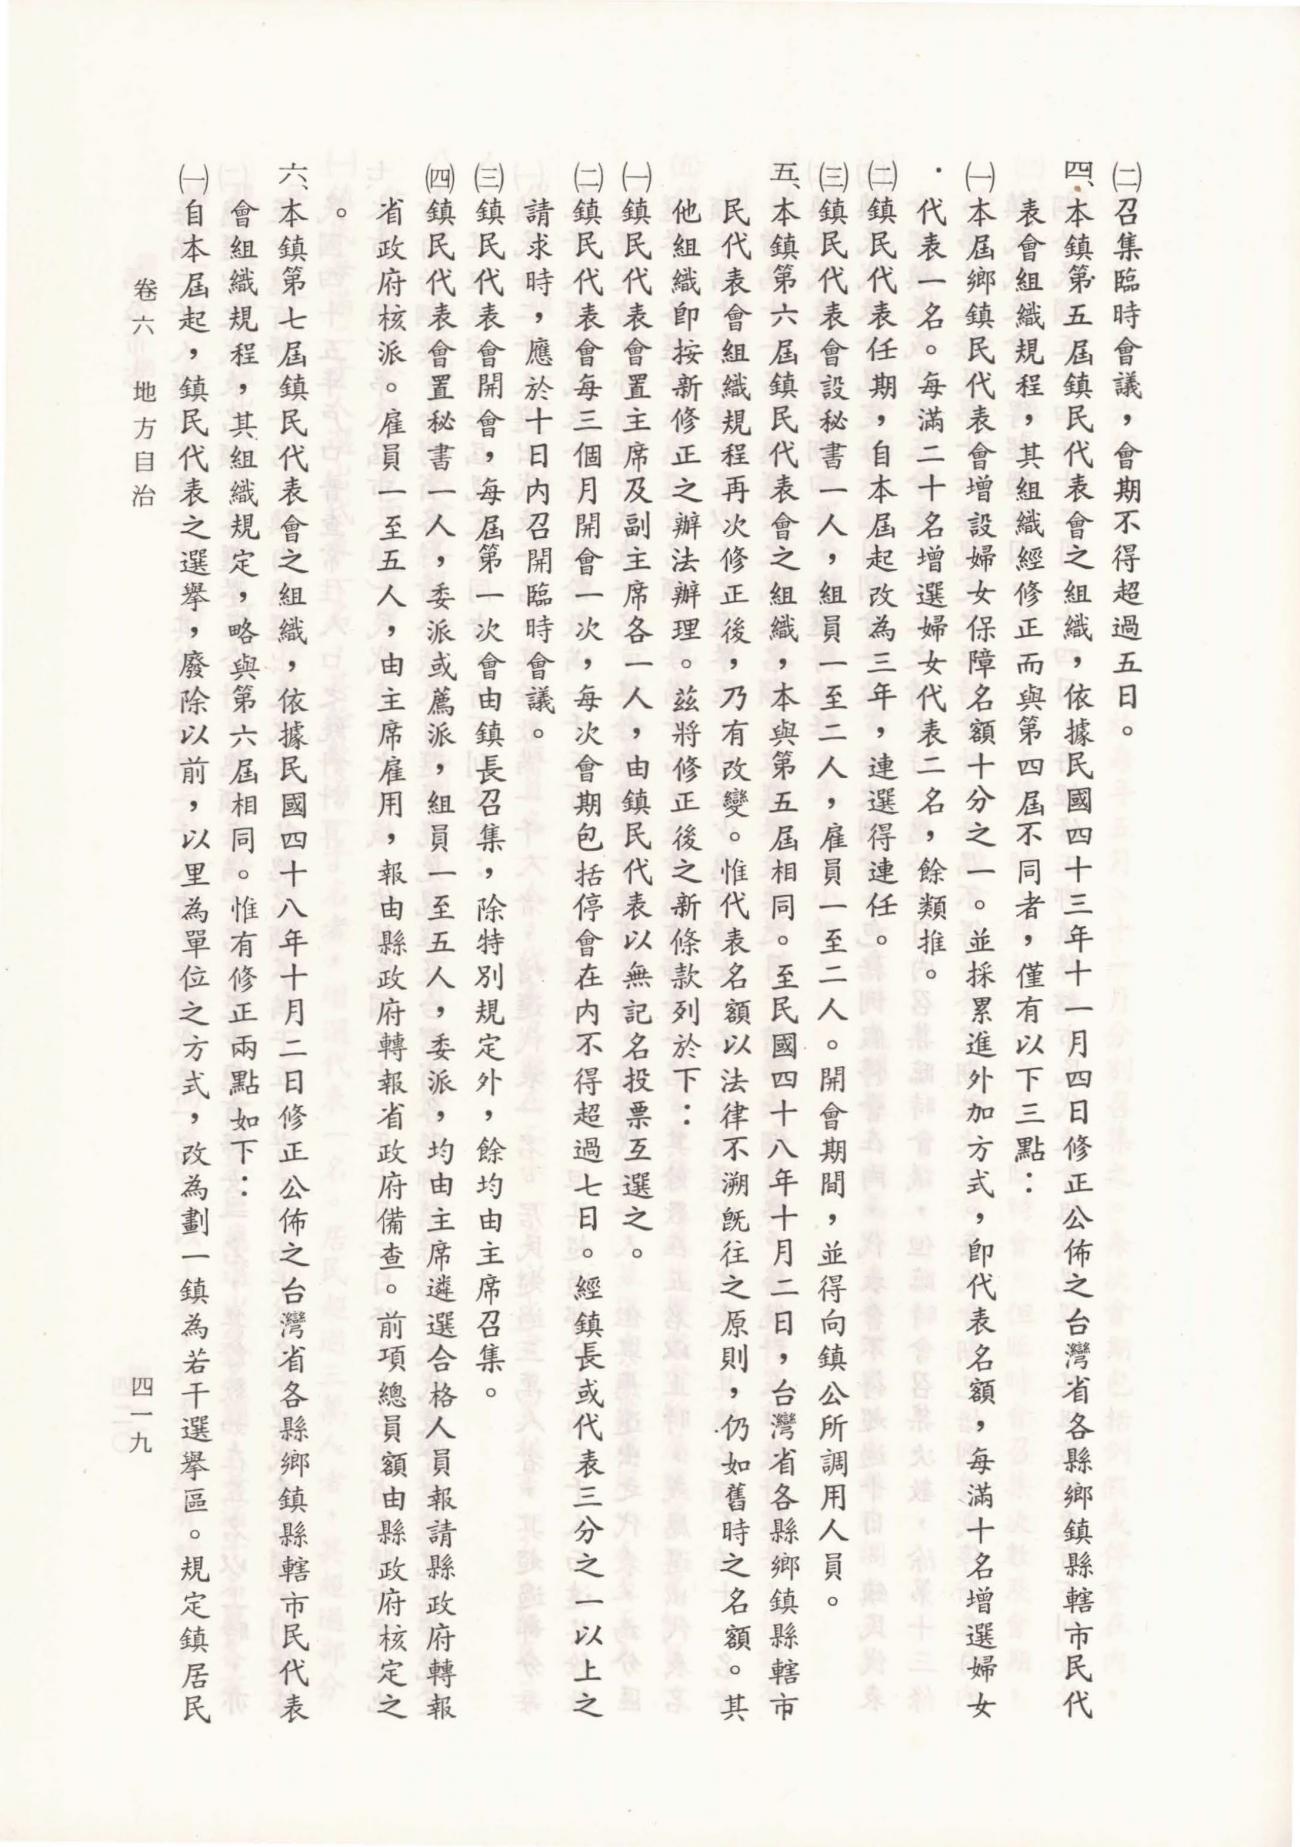 ㈡召集臨時會議，會期不得超過五日。
四、本鎮第五屆鎮民代表會之組織，依據民國四十三年十一月四日修正公佈之台灣省各縣鄉鎮縣轄市民代
表會組織規程，其組織經修正而與第四屆不同者，僅有以下三點：
㈠本屆鄉鎮民代表會增設婦女保障名額十分之一。並採累進外加方式，卽代表名額，每滿十名增選婦女
代表一名。每滿二十名增選婦女代表二名，餘類推。
㈡鎮民代表任期，自本屆起改為三年，連選得連任。
㈢鎮民代表會設秘書一人，組員一至二人，雇員一至二人。開會期間，並得向鎮公所調用人員。
五、本鎮第六屆鎮民代表會之組織，本與第五屆相同。至民國四十八年十月二日，台灣省各縣鄉鎮縣轄市
民代表會組織規程再次修正後，乃有改變。惟代表名額以法律不溯既往之原則，仍如舊時之名額。其
他組織卽按新修正之辦法辦理。茲將修正後之新條款列於下：
㈠鎮民代表會置主席及副主席各一人，由鎮民代表以無記名投票互選之。
㈡鎮民代表會每三個月開會一次，每次會期包括停會在內不得超過七日。經鎮長或代表三分之一以上之
請求時，應於十日內召開臨時會議。
㈢鎮民代表會開會，每屆第一次會由鎮長召集，除特別規定外，餘均由主席召集。
㈣鎮民代表會置秘書一人，委派或薦派，組員一至五人，委派，均由主席遴選合格人員報請縣政府轉報
省政府核派。雇員一至五人，由主席雇用，報由縣政府轉報省政府備查。前項總員額由縣政府核定之
。
六、本鎮第七屆鎮民代表會之組織，依據民國四十八年十月二日修正公佈之台灣省各縣鄉鎮縣轄市民代表
會組織規程，其組織規定，略與第六屆相同。惟有修正兩點如下：
㈠自本屆起，鎮民代表之選舉，廢除以前，以里為單位之方式，改為劃一鎮為若干選舉區。規定鎮居民
卷六　地方自治
四一九